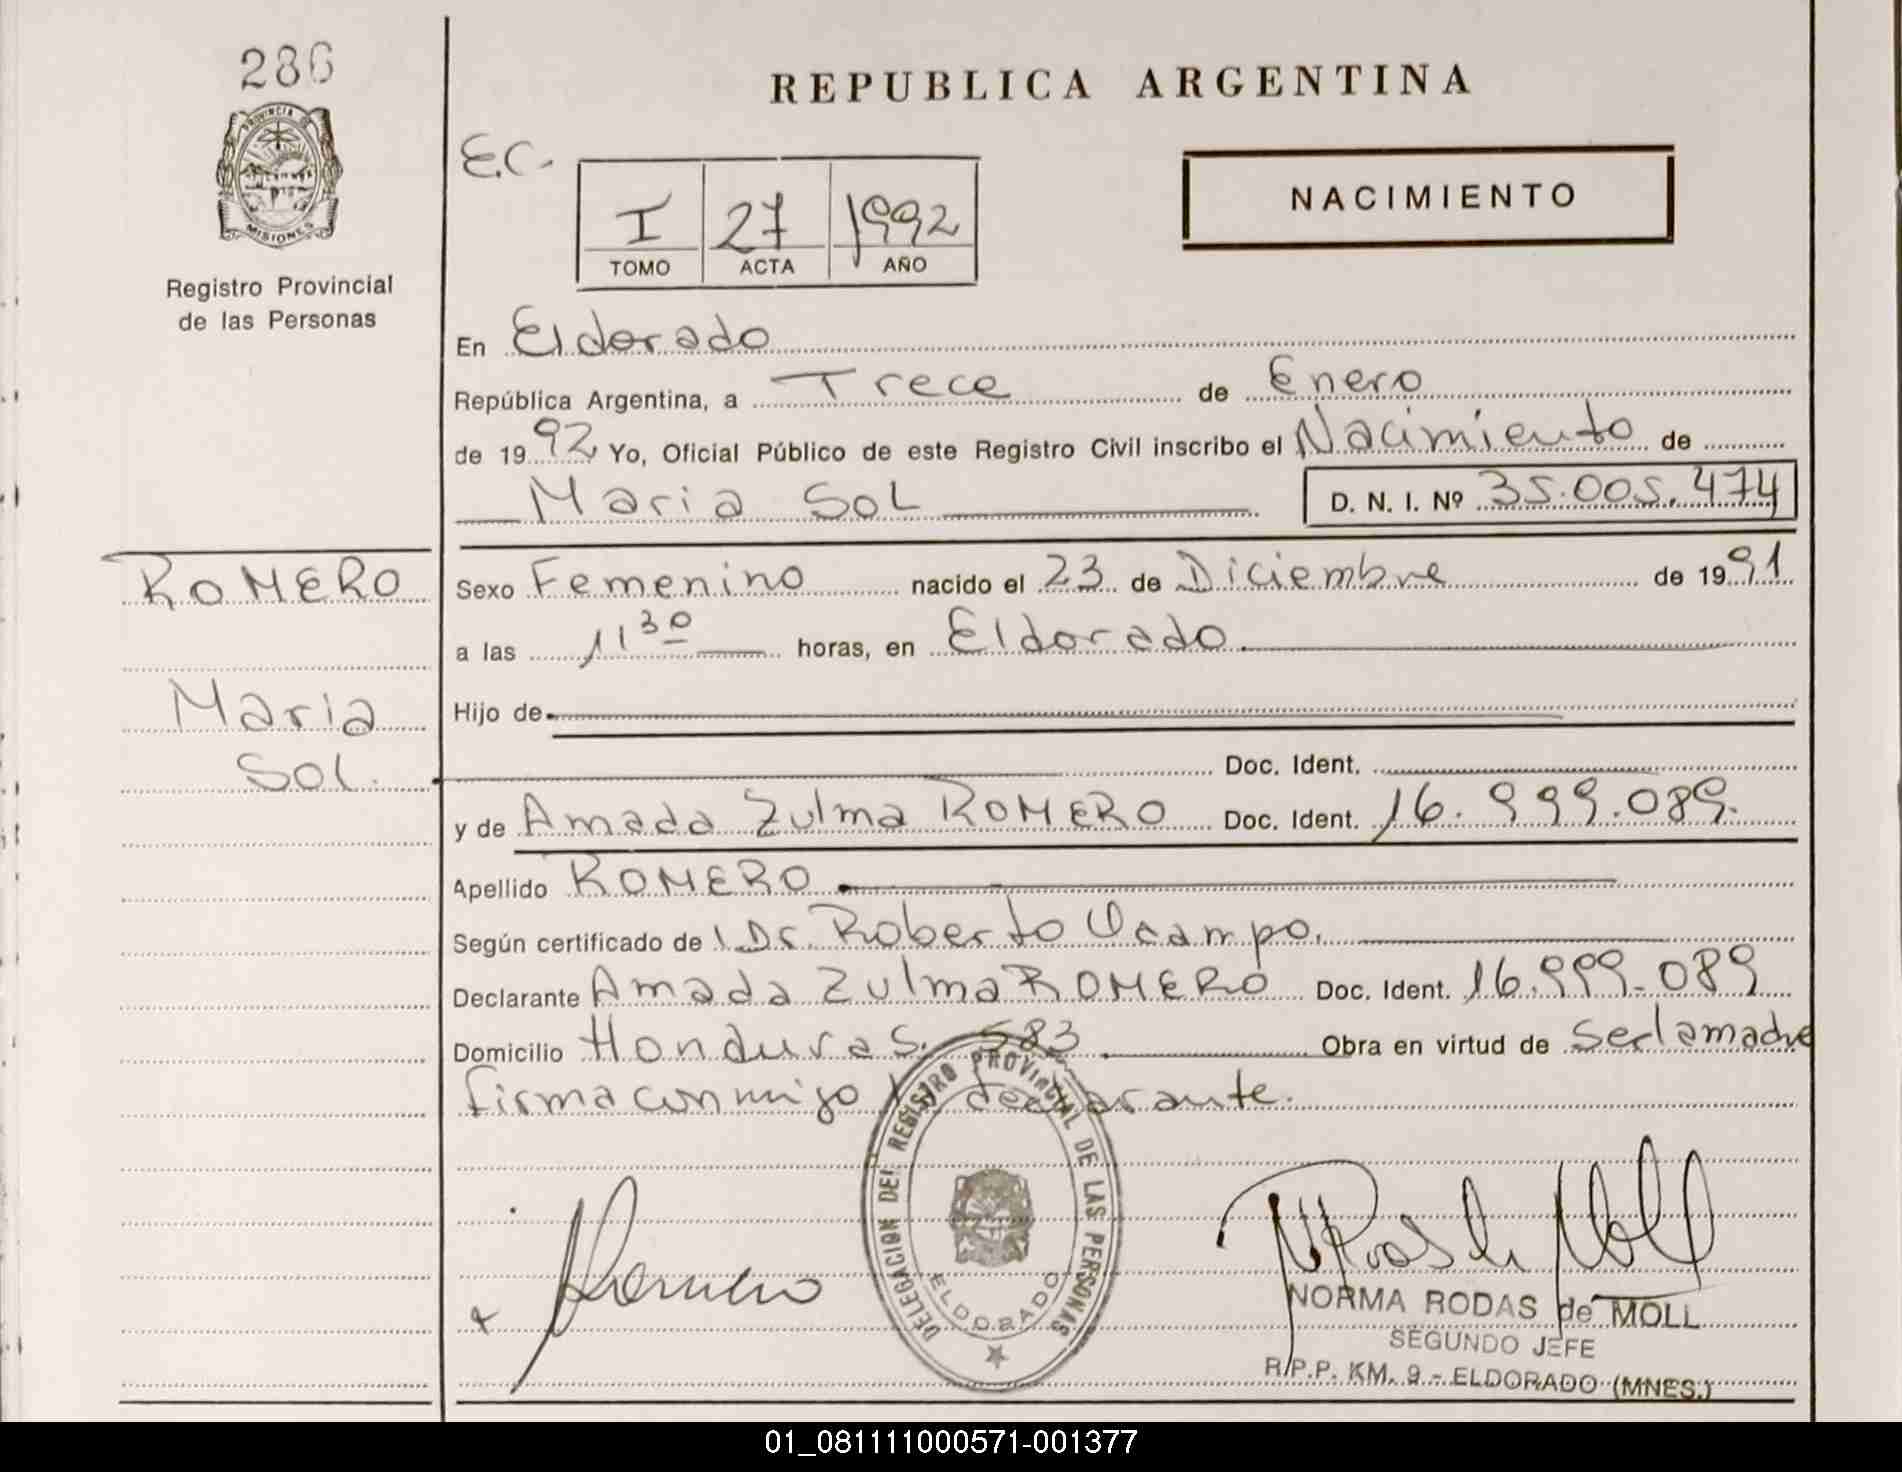 286
PROVINCIA DE
MISIONES
Registro Provincial
de las Personas
REPUBLICA ARGENTINA
E.C.
I 27 1992
TOMO ACTA AÑO
NACIMIENTO
En Eldorado
República Argentina, a Trece de Enero
de 1992 Yo, Oficial Público de este Registro Civil inscribo el Nacimiento de
Maria Sol D. N. I. Nº 35.005.474
ROMERO
Maria
Sol.
Sexo Femenino nacido el 23 de Diciembre de 1991
a las 11 30 horas, en Eldorado
Hijo de
Doc. Ident.
y de Amada Zulma ROMERO Doc. Ident. 16.999.089.
Apellido ROMERO
Según certificado de Dr. Roberto Ocampo.
Declarante Amada Zulma ROMERO Doc. Ident. 16.999.089
Domicilio Honduras. 583 Obra en virtud de Ser la madre
firma conmigo declarante.
DELEGACION DEL REGISTRO PROVINCIAL DE LAS PERSONAS
ELDORADO
Romero
N Rodas de Moll
NORMA RODAS de MOLL
SEGUNDO JEFE
R.P.P. KM. 9 - ELDORADO (MNES.)
01_081111000571-001377